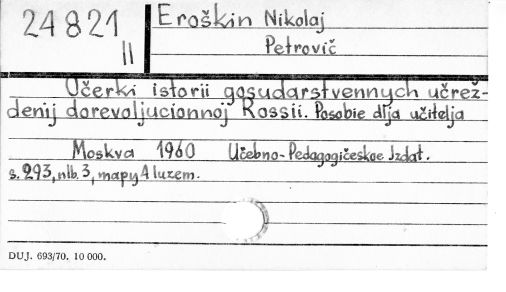 24821
II
Eroškin Nikolaj
Petrovič
Očerki istorii gosudarstvennych učrež-
denij dorevoljucionnoj Rossii. Posobie dlja učitelja
Moskva 1960 Učebno-Pedagogičeskoe Izdat.
s. 293, nlb. 3, mapy 4 luzem.
DUJ. 693/70. 10 000.